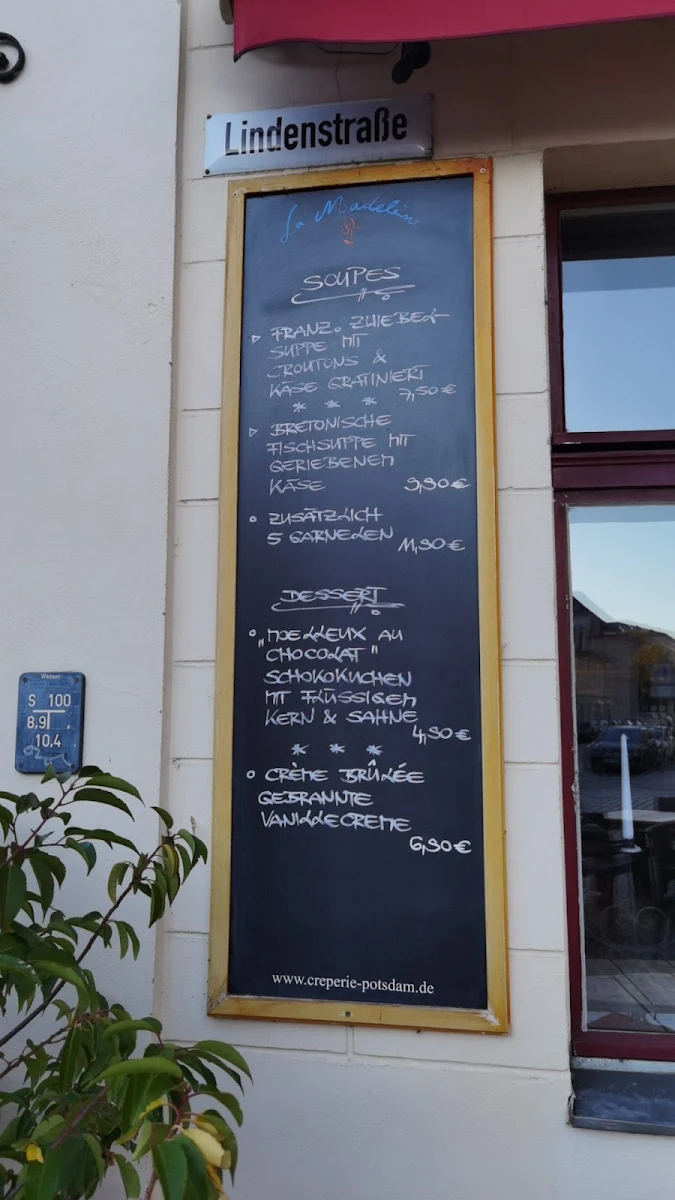 Lindenstraße
La Madeleine
SOUPES
▹ FRANZ. ZWIEBEL-
SUPPE MIT
CROUTONS &
KÄSE GRATINIERT
7,50 €
* * *
▹ BRETONISCHE
FISCHSUPPE MIT
GERIEBENEM
KÄSE 9,90 €
° ZUSÄTZLICH
5 GARNELEN
11,90 €
DESSERT
° „MOELLEUX AU
CHOCOLAT"
SCHOKOKUCHEN
MIT FLÜSSIGEM
KERN & SAHNE
4,90 €
* * *
° CRÈME BRÛLÉE
GEBRANNTE
VANILLECREME
6,90 €
www.creperie-potsdam.de
Wasser
S 100
8,9
10,4